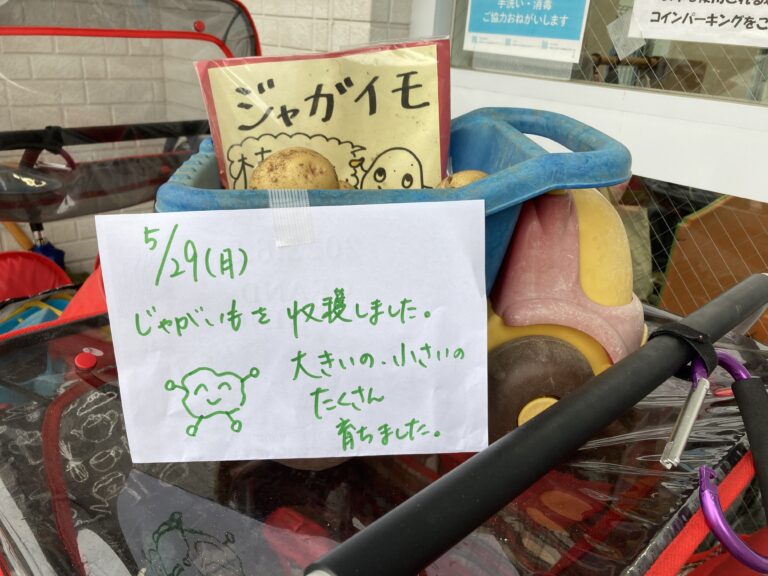 手洗い・消毒
ご協力おねがいします
コインパーキングをご
ジャガイモ
5/29(月)
じゃがいもを 収穫しました。
大きいの・小さいの
たくさん
育ちました。